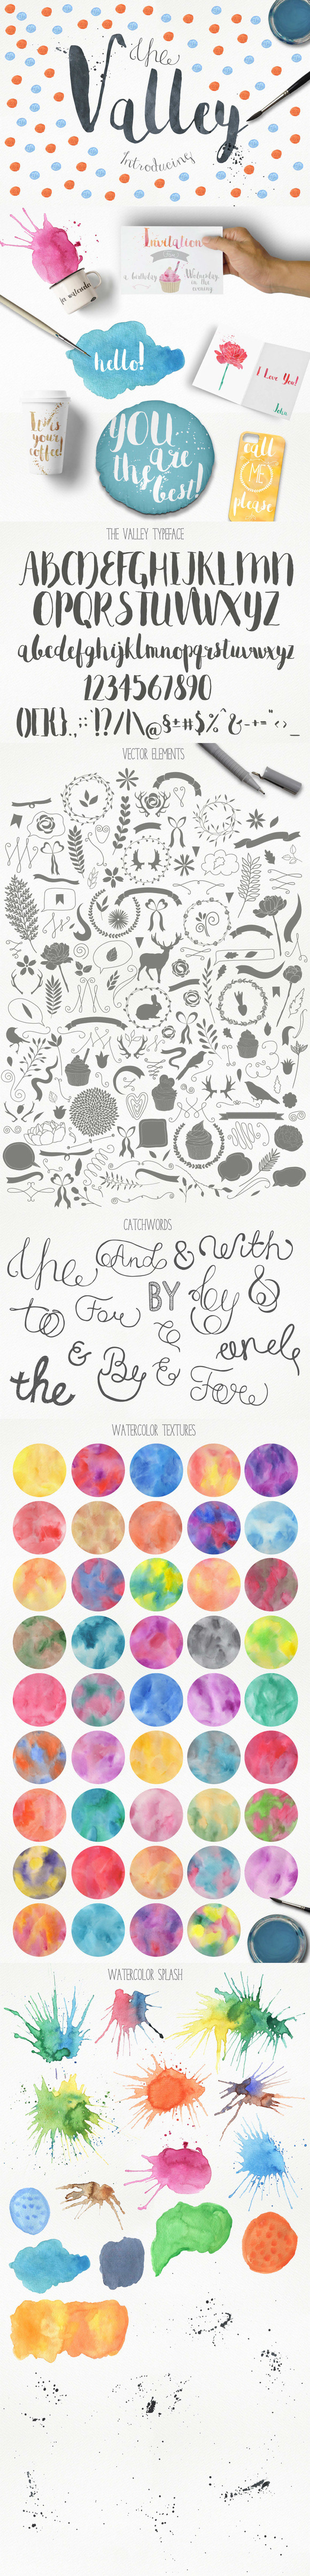 the
Valley
Introducing
Invitation
a birthday
Wednesday
in the
evening
hello!
I Love You!
Julia
it is
your
coffee!
you
are
the
best!
call
ME
please
THE VALLEY TYPEFACE
ABCDEFGHIJKLMN
OPQRSTUVWXYZ
abcdefghijklmnopqrstuvwxyz
1234567890
()[]{}.,:;!?/|\@§±#$%^&-+="<>_
VECTOR ELEMENTS
CATCHWORDS
the And & with
to For BY by &
&
the & By & For
WATERCOLOR TEXTURES
WATERCOLOR SPLASH